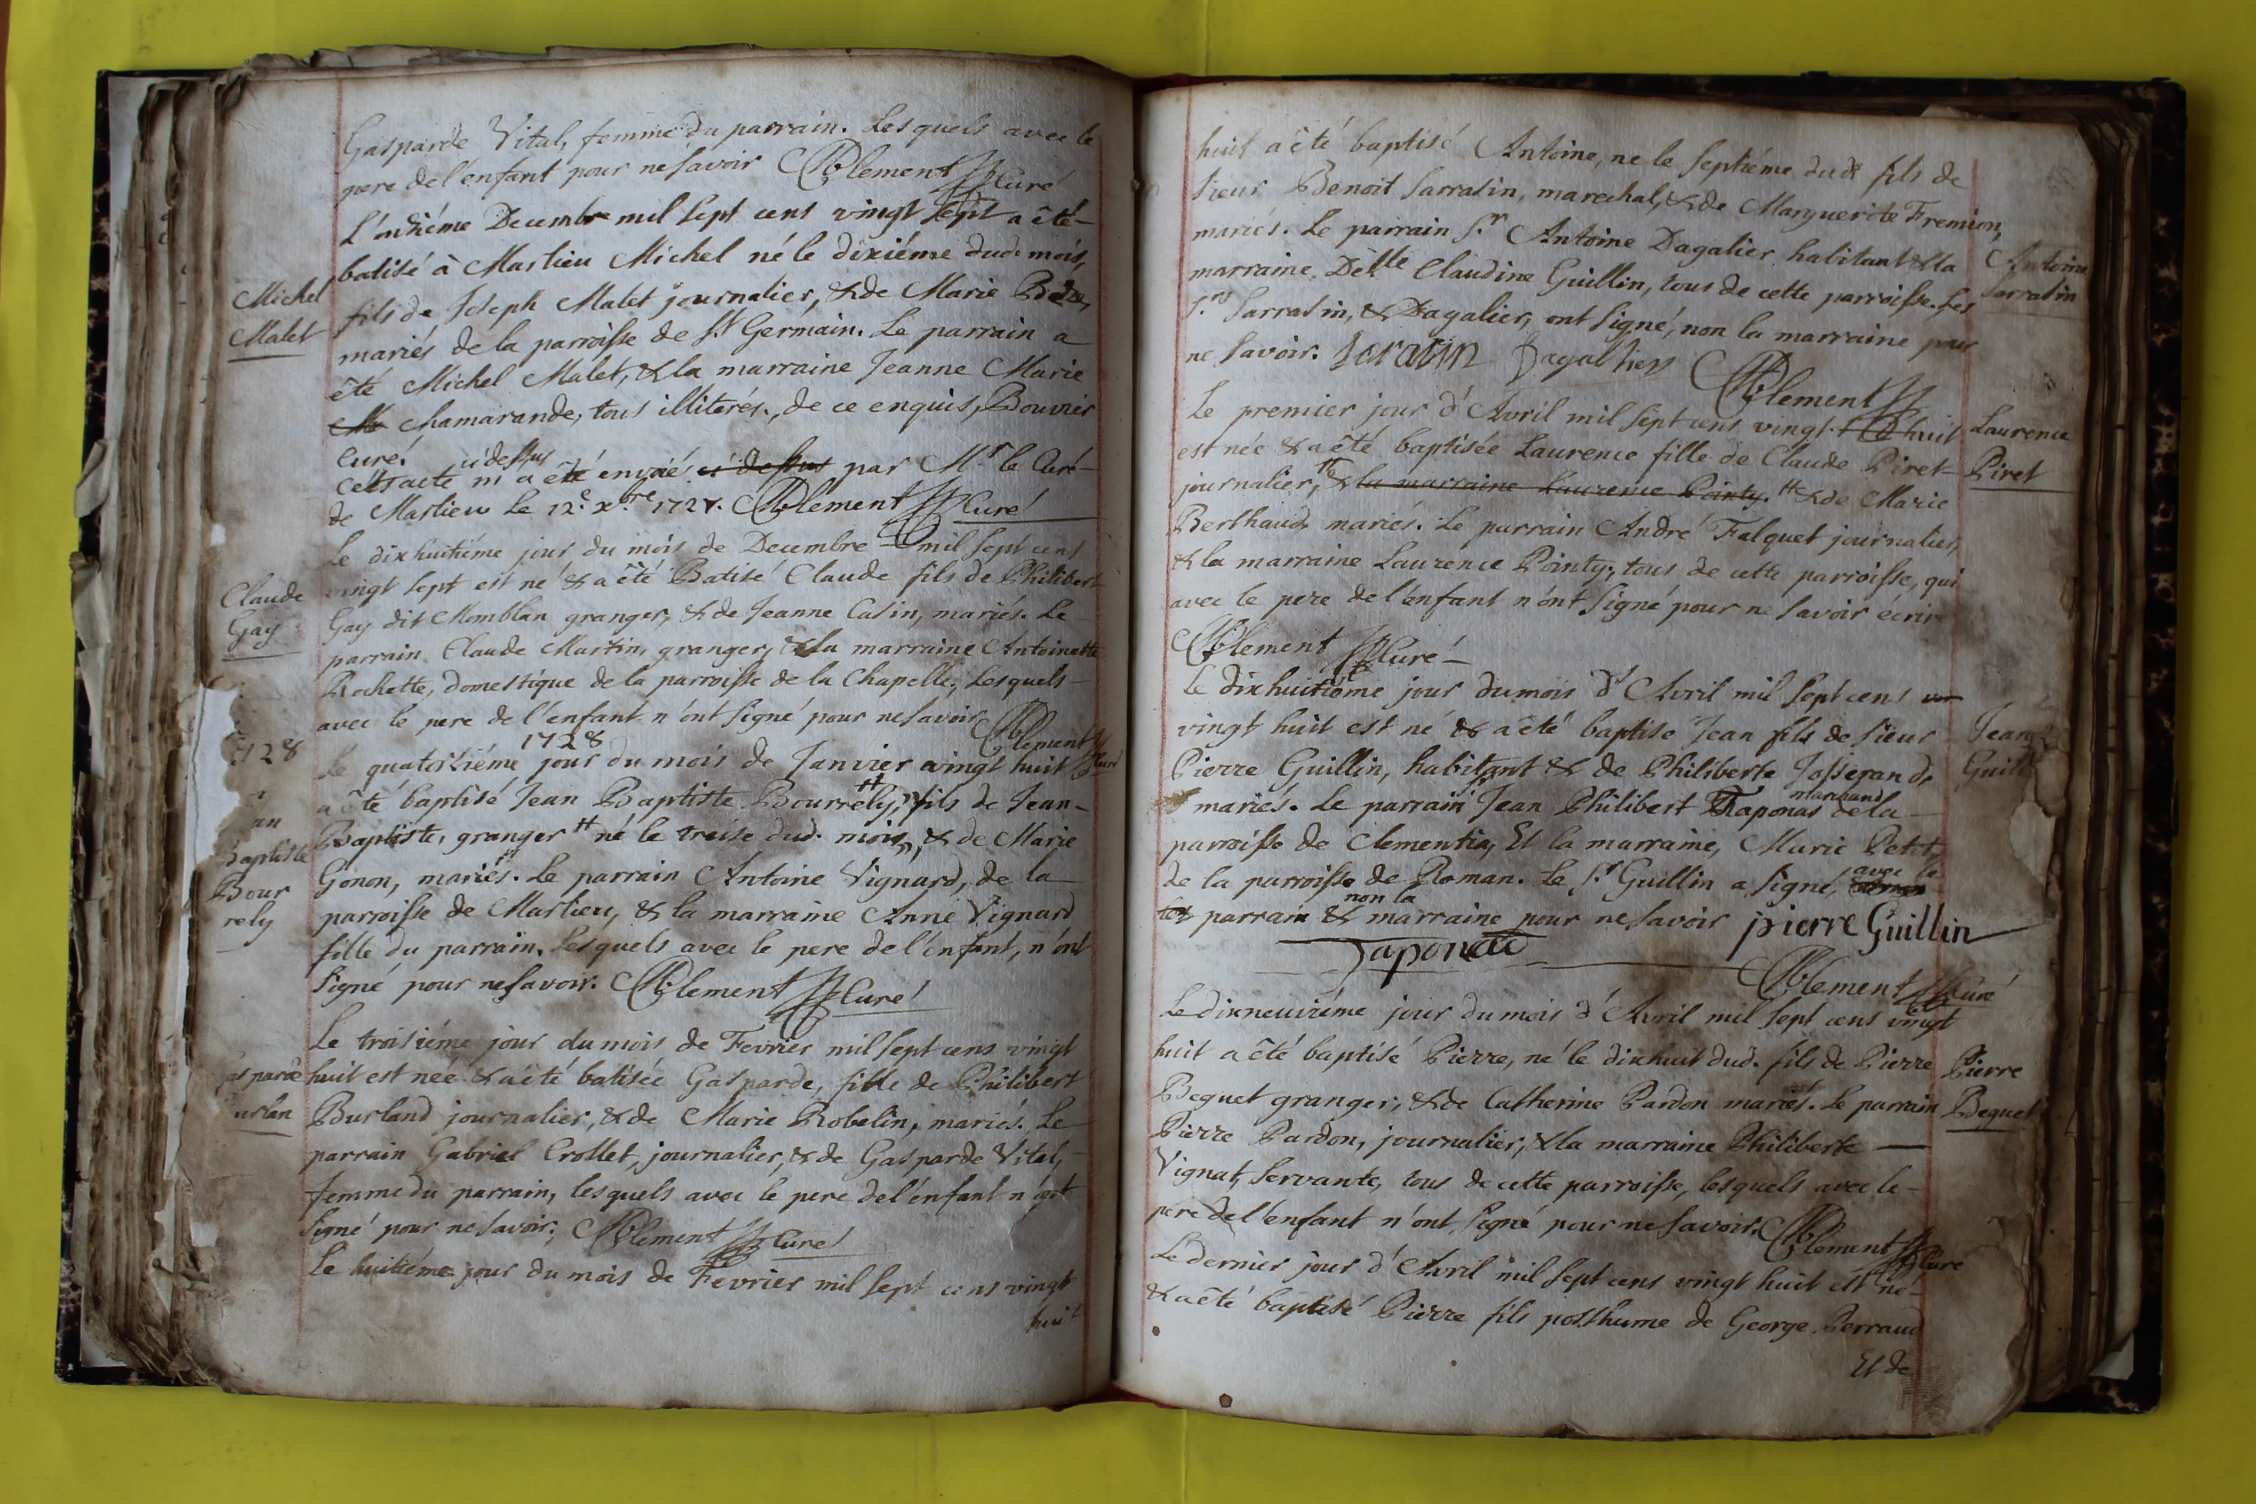 Gasparde Vital, femme du parrain. Lesquels avec le
pere de l'enfant pour ne savoir Clement Curé
L'onziéme Decembre mil sept cens vingt sept a êté
batisé à Marlieu Michel né le dixiéme dud. mois,
fils de Joseph Malet journalier, & de Marie
Michel
Malet
mariés de la parroisse de St Germain. Le parrain a
êté Michel Malet, & la marraine Jeanne Marie
Chamarande, tous illiterés, de ce enquis, Bouvier
curé.
Cet acte m'a êté envoié ci dessus par Mr le Curé
de Marlieu le 12e xbre 1727. Clement Curé
Le dixhuitiéme jour du mois de Decembre mil sept cens
vingt sept est né & a êté Batisé Claude fils de Philibert
Claude
Gay
Gay dit Monblan granger, & de Jeanne Casin, mariés. Le
parrain Claude Martin, granger, & la marraine Antoinette
Rochette, domestique de la parroisse de la Chapelle, Lesquels
avec le pere de l'enfant n'ont signé pour ne savoir Clement Curé
1728
1728
Le quatorziéme jour du mois de Janvier vingt huit
a êté baptisé Jean Baptiste Bourrely, fils de Jean
Baptiste, granger né le treise dud. mois, & de Marie
Baptiste
Bour
rely
Gonon, mariés. Le parrain Antoine Vignard, de la
parroisse de Marlieu, & la marraine Anne Vignard
fille du parrain. Lesquels avec le pere de l'enfant, n'ont
signé pour ne savoir. Clement Curé
Le troisiéme jour du mois de Fevrier mil sept cens vingt
huit est neé & a êté batisée Gasparde, fille de Philibert
Gasparde
Burlan
Burland journalier, & de Marie Robelin, mariés. Le
parrain Gabriel Crollet, journalier, & de Gasparde Vital,
femme du parrain, lesquels avec le pere de l'enfant n'ont
signé pour ne savoir. Clement Curé
Le huitiéme jour du mois de Fevrier mil sept cens vingt
huit
huit a êté baptisé Antoine, ne le septiéme dud. fils de
sieur Benoit Sarrasin, marechal, & de Marguerite Fremion,
mariés. Le parrain Sr Antoine Dagalier habitant & la
marraine Delle Claudine Guillin, tous de cette parroisse. Les
Antoine
Sarrasin
Srs Sarrasin, & Dagalier, ont signé, non la marraine pour
ne savoir. Sarasin Dagallier Clement
Le premier jour d'Avril mil sept cens vingt huit
est née & a êté baptisée Laurence fille de Claude Piret
Laurence
Piret
journalier, & la marraine Laurence Pointy. & de Marie
Berthaud mariés. Le parrain André Falquet journalier,
& la marraine Laurence Pointy, tous de cette parroisse, qui
avec le pere de l'enfant n'ont signé pour ne savoir écrire
Clement Curé
Le dixhuitiéme jour du mois d'Avril mil sept cens
vingt huit est né & a êté baptisé Jean fils de sieur
Pierre Guillin, habitant & de Philiberte Josserand,
Jean
Guill
mariés. Le parrain Jean Philibert Taponas marchand de la
parroisse de Clementia, Et la marraine, Marie Petit,
de la parroisse de Roman. Le Sr Guillin a signé, avec le
parrain & non la marraine pour ne savoir pierre Guillin
Taponas
Clement Curé
Le dixneuviéme jour du mois d'Avril mil sept cens vingt
huit a êté baptisé Pierre, né le dixhuit dud. fils de Pierre
Pierre
Bequet
Bequet granger, & de Catherine Pardon mariés. Le parrain
Pierre Pardon, journalier, & la marraine Philiberte
Vignat, servante, tous de cette parroisse, lesquels avec le
pere de l'enfant n'ont signé pour ne savoir. Clement Curé
Le dernier jour d'Avril mil sept cens vingt huit est né
& a êté baptisé Pierre fils posthume de George Perraud
Et de